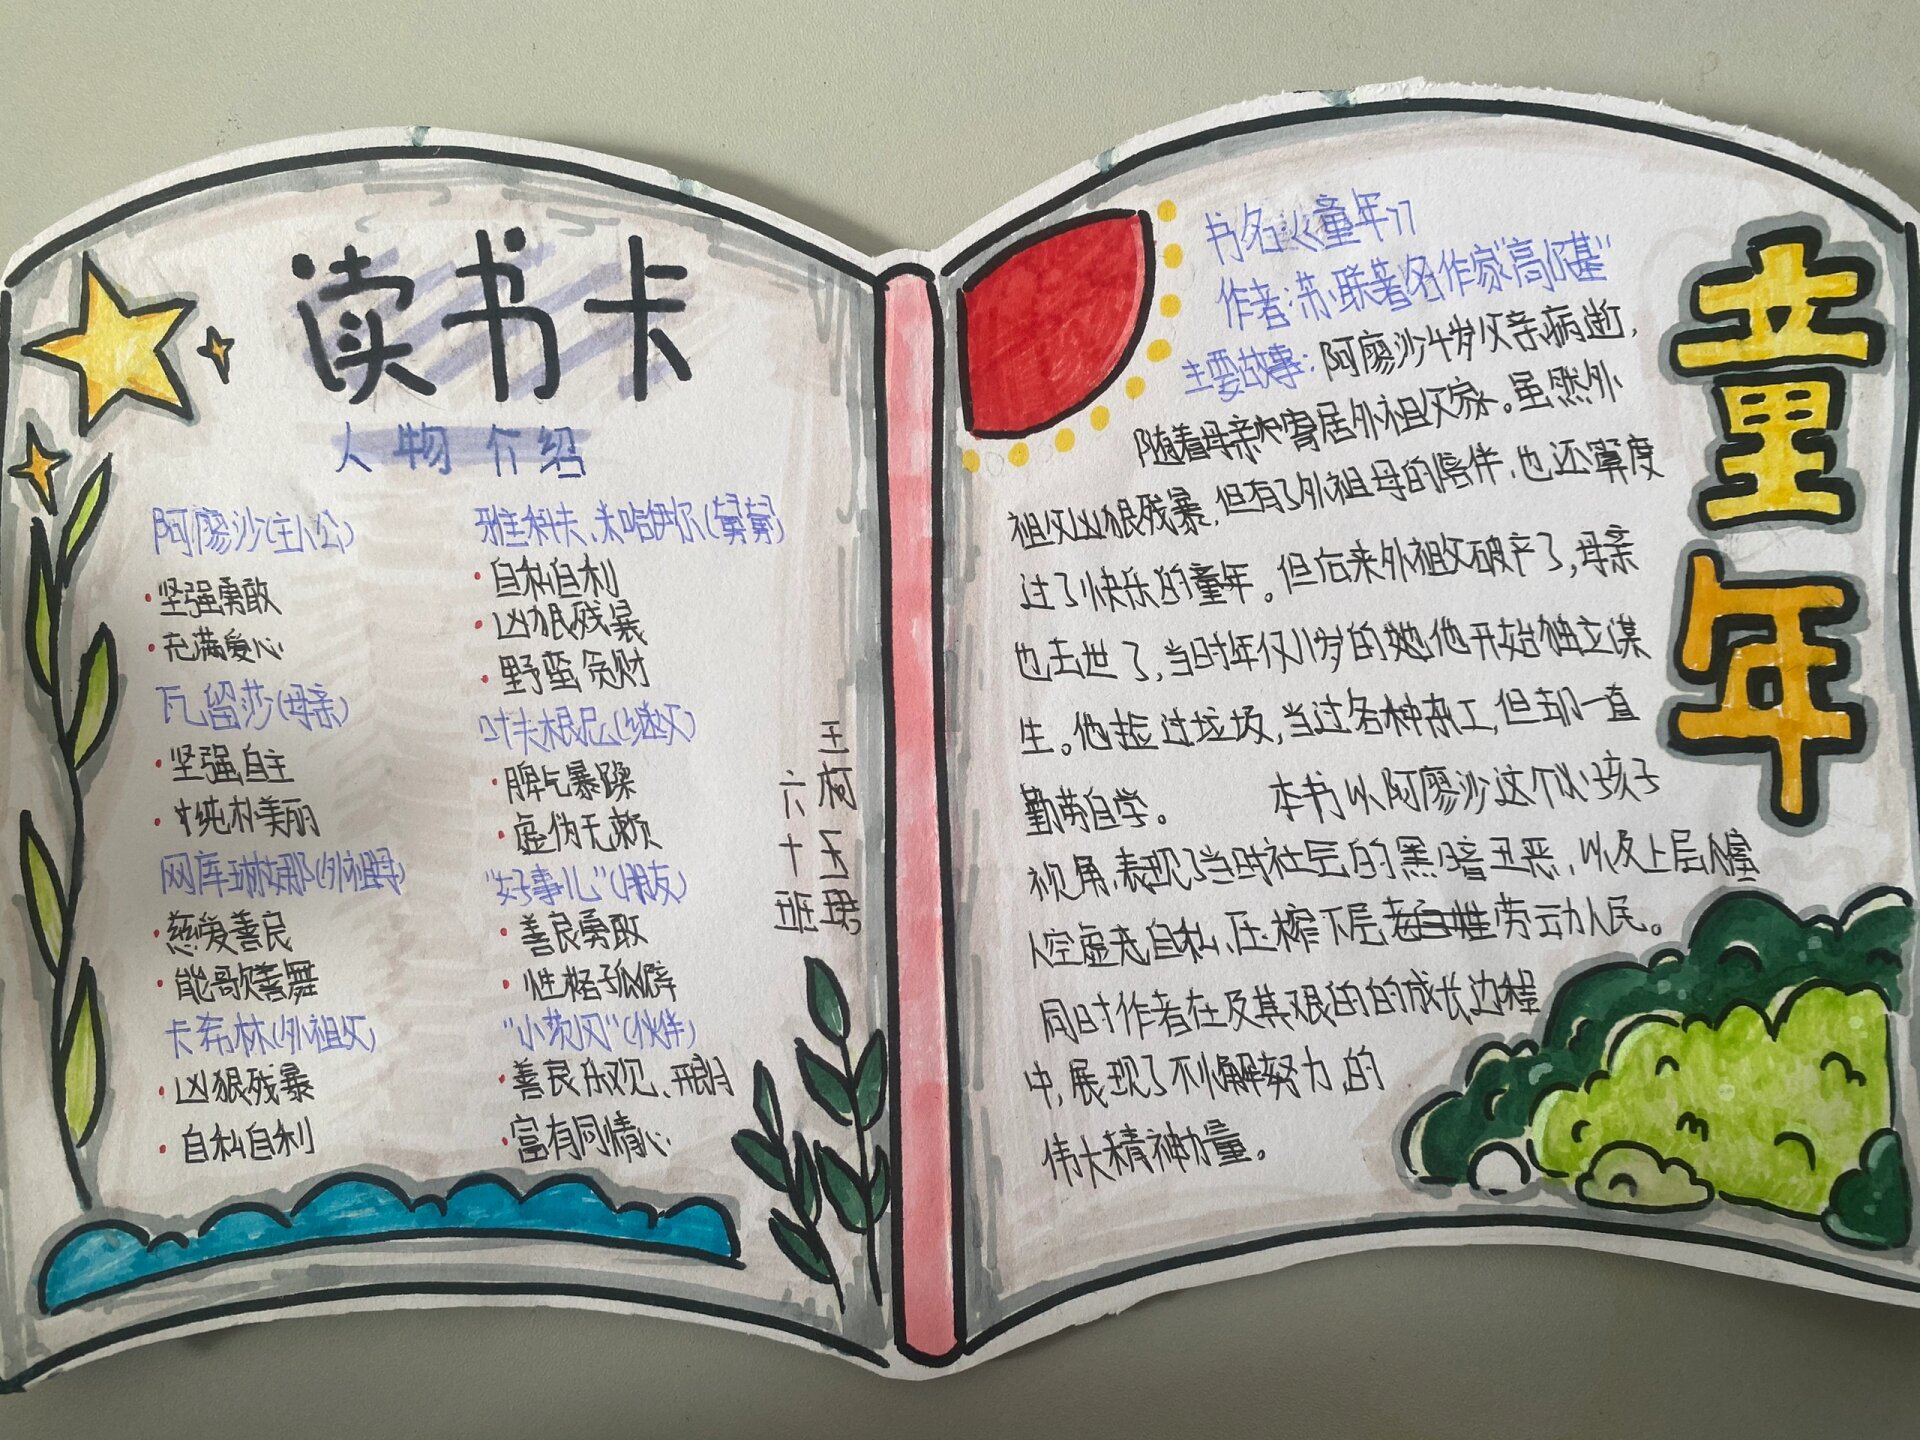 读书卡
人物介绍
阿廖沙(主人公)
·坚强勇敢
·充满爱心
瓦留莎(母亲)
·坚强自主
·纯朴美丽
阿库琳娜(外祖母)
·慈爱善良
·能歌善舞
卡布林(外祖父)
·凶狠残暴
·自私自利
雅科夫、米哈伊尔(舅舅)
·自私自利
·凶狠残暴
·野蛮贪财
叶夫根尼(继父)
·脾气暴躁
·虚伪无赖
"好事儿"(朋友)
·善良勇敢
·性格孤僻
"小茨冈"(伙伴)
·善良乐观、开朗
·富有同情心
六十班
童年
书名:《童年》
作者:苏联著名作家"高尔基"
主要故事:阿廖沙十岁父亲病逝,
随着母亲寄居外祖父家。虽然外
祖父凶狠残暴,但有了外祖母的陪伴,也还算度
过了快乐的童年。但后来外祖父破产了,母亲
也去世了,当时年仅11岁的他开始独立谋
生。他捡过垃圾,当过各种杂工,但却一直
勤劳自学。 本书以阿廖沙这个小孩子
视角,表现了当时社会的黑暗丑恶,以及上层人
人空虚自私、压榨下层劳动人民。
同时作者在及其艰的的成长边程
中,展现了不懈努力的
伟大精神力量。